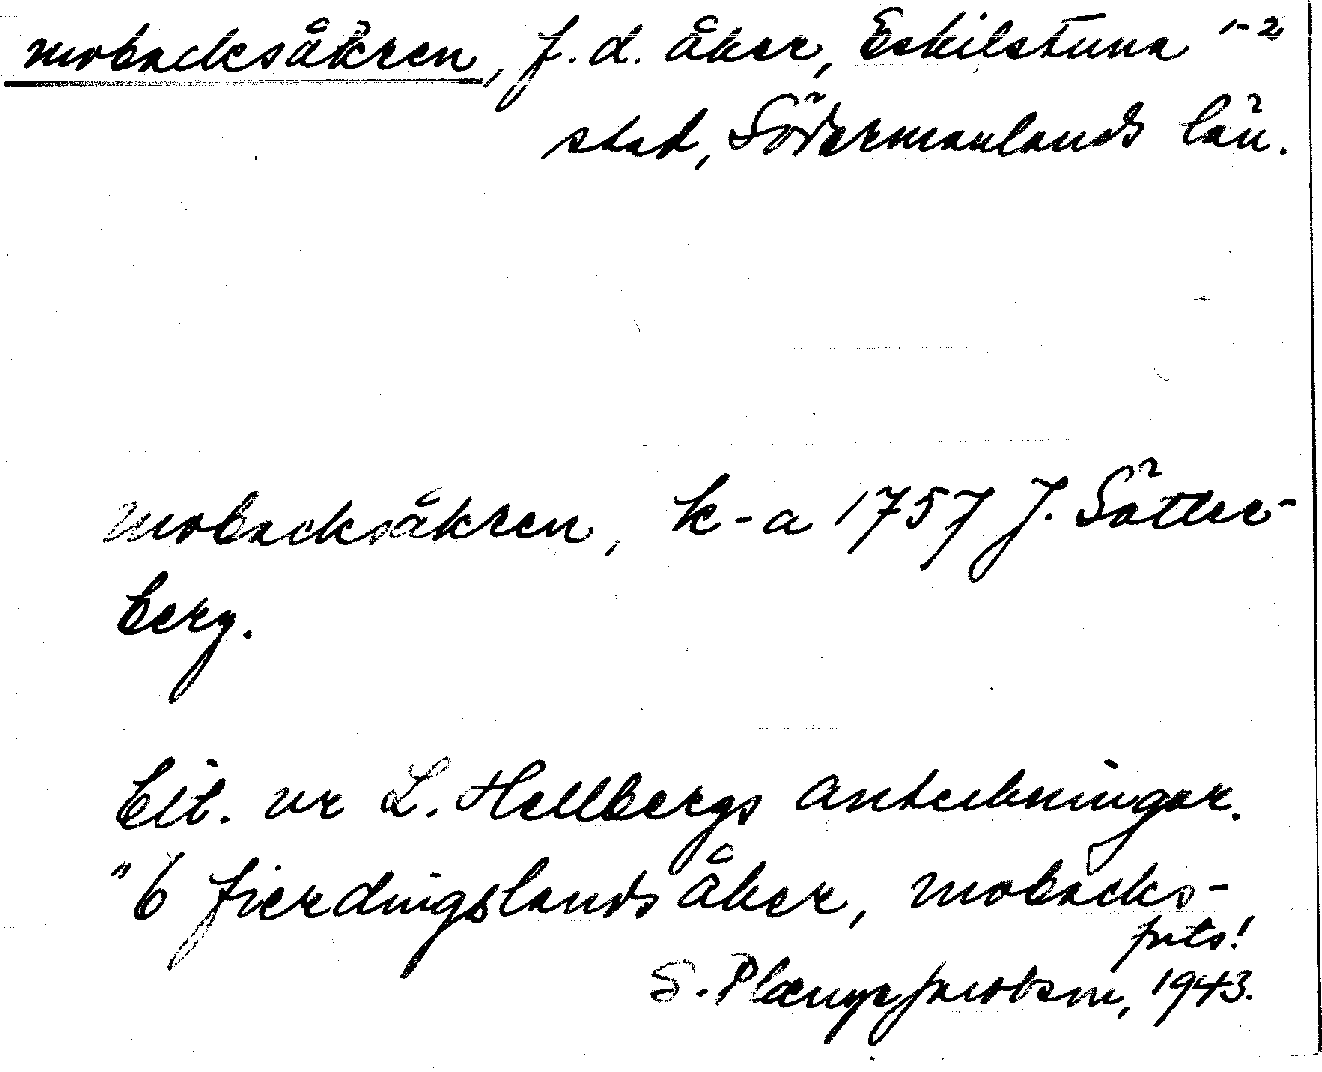 mobacksåkren, f.d. åker, Eskilstuna 1-2
stad, Södermanlands län.
mobacksåkren, k-a 1757 J. Sätter-
berg.
Cit. ur L. Hellbergs anteckningar.
"6 fierdingslands åker, mobacks-
forts!
S. Plænge Jacobson, 1943.